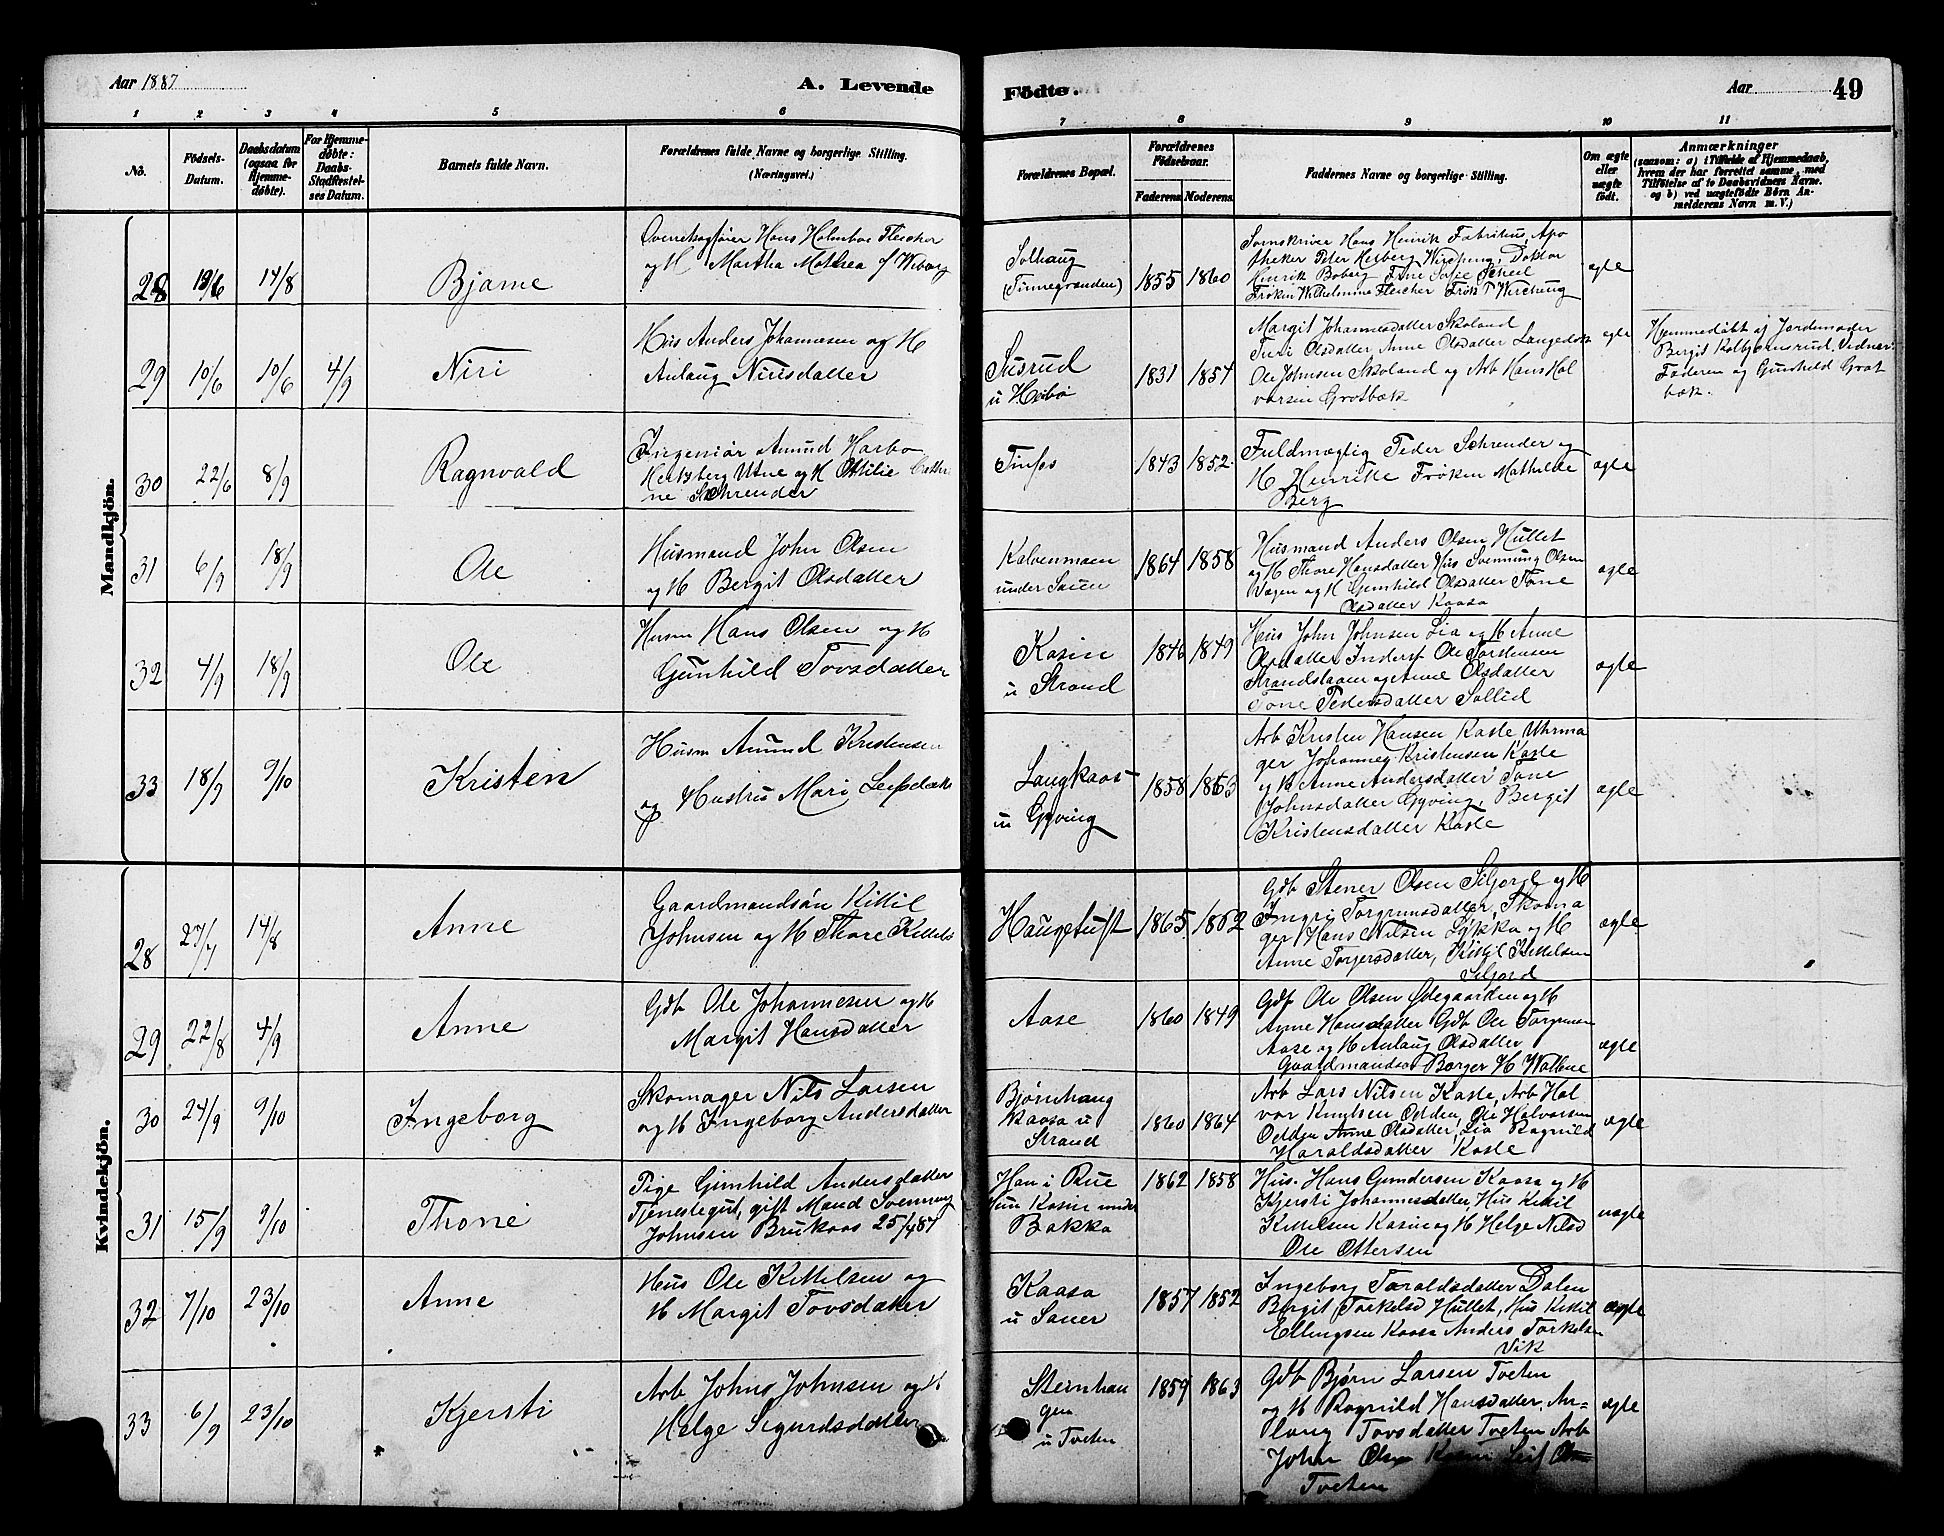 Aar 1887
A. Levende
Födte.
Aar
49
1 2 3 4 5 6
7 8 9 10 11
No.
Födsels-
Datum.
Daabsdatum
(ogsaa for
Hjemme-
døbte).
For Hjemme-
døbte:
Daabs-
Stadfæstel-
ses Datum.
Barnets fulde Navn.
Forældrenes fulde Navne og borgerlige Stilling.
(Næringsvei.)
Forældrenes Bopæl.
Forældrenes
Födselsaar.
Faderens.
Moderens.
Faddernes Navne og borgerlige Stilling.
Om ægte
eller
uægte
født.
Anmærkninger
(saasom: a) i Tilfælde af Hjemmedaab,
hvem der har forrettet samme, med
Tilföielse af to Daabsvidners Navne.
og b) ved uægtefödte Börn An-
melderens Navn m. V.)
Mandkjön.
28
14/8
Bjarne
Overretssagfører Hans Holmboe Fleischer
og H Martha Mathea f Wiborg
Solhaug
(Tinnegranden)
1855
1860
Sornskriver Hans Henrik Fabritius, Apo
theker Peter Herberg Wirching, Doktor
Henrik Boberg Frue Sofie Scheel
Frøken Wilhelmine Fleischer Frøk T Wirching
ægte
29
10/6
10/6
4/9
Niri
Hus Anders Johannesen og H
Anlaug Nirisdatter
Susrud
u Heibø
1831
1854
Margit Johannesdatter Skoland
Turi Olsdatter, Anne Olsdatter Langedok
Ole Johnsen Skoland og Arb Hans Hal
vorsen Grotbæk
ægte
Hjemmedøbt af Jordemoder
Bergit Kolbjørnsrud. Vidner
Faderen og Gunhild Grot
bæk.
30
22/6
8/9
Ragnvald
Ingeniør Amund Harbo
Hertzberg Utne og H Ottilie Cathri
ne Schrender
Tinfos
1843
1852
Fuldmægtig Peder Schrender og
H Henrikke Frøken Mathilde
Berg
ægte
31
6/9
18/9
Ole
Husmand John Olsen
og H Bergit Olsdatter
Kalvenmoen
under Sauer
1864
1858
Husmand Anders Olsen Hullet
og H Thore Hansdatter Hus Svennung Olsen
Vagen og H Gunhild Olsdatter Tone
Olsdatter Kaasa
ægte
32
4/9
18/9
Ole
Husm Hans Olsen og H
Gunhild Tovsdatter
Kasin
u Strand
1846
1849
Hus John Johnsen Lia og H Anne
Olsdatter Inderst Ole Torstensen
Strandstaaen og Anne Olsdatter
Tone Pedersdatter Sollid
ægte
33
18/9
9/10
Kristen
Husm Amund Kristensen
og Hustru Mari Leifsdatter
Langkaas
u Gyving
1858
1853
Arb Kristen Hansen Kasle, Uhrma
ger Johannes Kristensen Kasle
og H Anne Andersdatter Tone
Johnsdatter Gyving, Bergit
Kristensdatter Kasle
ægte
Kvindekjön.
28
27/7
14/8
Anne
Gaardmandsøn Kittil
Johnsen og H Thore Kittels
Haugetuft
1865
1862
Gdb Stener Olsen Seljord og H
Ingri Torgrimsdatter, Skoma
ger Hans Nilsen Løkka og H
Anne Torgersdatter, Kittil Kittelsen
Seljord
ægte
29
22/8
4/9
Anne
Gdb Ole Johannesen og H
Margit Hansdatter
Aase
1860
1849
Gdb Ole Olsen Ødegaarden og H
Anne Hansdatter Gdb Ole Torgrimsen
Aase og H Anlaug Olsdatter
Gaardmandsøn Borger H Walbue
ægte
30
24/9
9/10
Ingeborg
Skomager Nils Larsen
og H Ingeborg Andersdatter
Bjørnhaug
Kaasa u
Strand
1860
1864
Arb Lars Nilsen Kasle, Arb Hal
vor Knutsen Odden, Ole Halvorsen
Odden Anne Olsdatter, Lia Ragnild
Haraldsdatter Kasle
ægte
31
15/9
9/10
Thone
Pige Gunhild Andersdatter
Tjenestegut, gift Mand Svennung
Johnsen Brukaas 25/4 87
Han i Rue
Hun Kasin under
Bakka
1862
1858
Hus. Hans Gundersen Kaasa og H
Kjersti Johannesdatter, Hus Kittil
Kittilsen Kasin og H Helge Nilsd
Ole Ottersen
uægte
32
7/10
23/10
Anne
Hus Ole Kittelsen og
H Margit Tovsdatter
Kaasa
u Sauer
1857
1852
Ingeborg Taraldsdatter Dalen
Bergit Torkelsd Hullet, Hus Kittil
Ellingsen Kaasa Anders Torkelsen
Vik
ægte
33
6/9
23/10
Kjersti
Arb Johns Johnsen og H
Helge Sigurdsdatter
Steinhau
gen
u Tveten
1859
1863
Gdb Bjørn Larsen Tveten
og H Ragnild Hansdatter, An-
laug Tovsdatter Tveten Arb
John Olsen Kasin Leif
Tveten
ægte